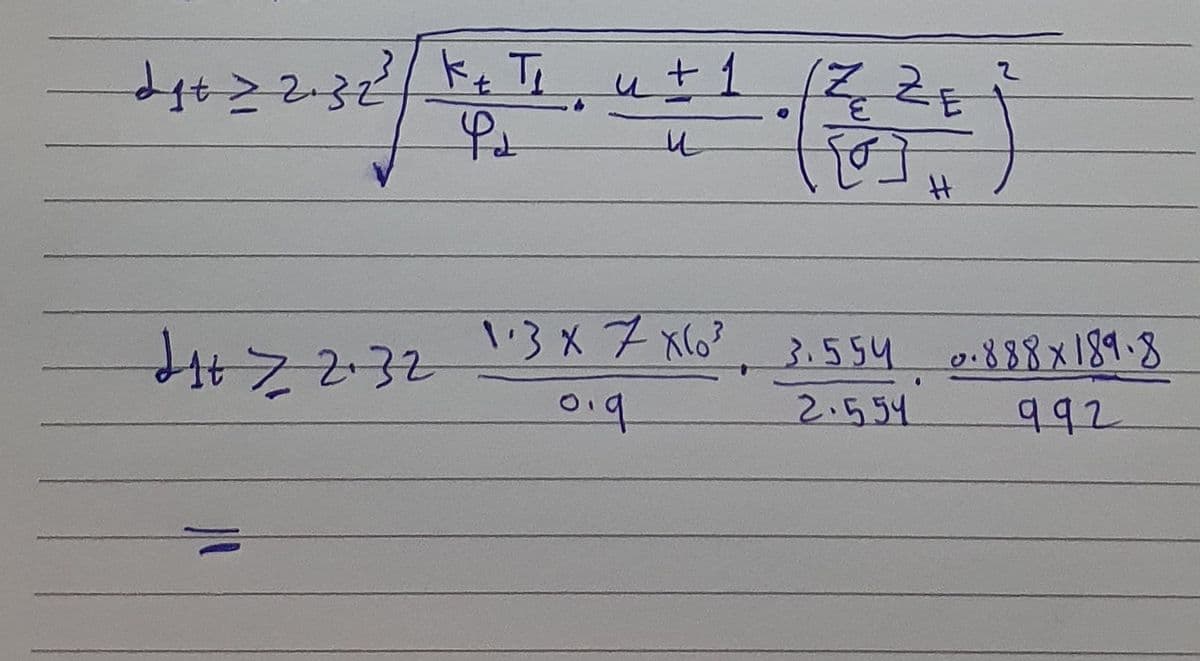 d1t ≥ 2.32 ∛( kt T1 / φd · u ± 1 / u · ( Zε ZE / [σ]H )² )
d1t ≥ 2.32 1.3 x 7 x10³ / 0.9 · 3.554 / 2.554 · 0.888 x 189.8 / 992
=